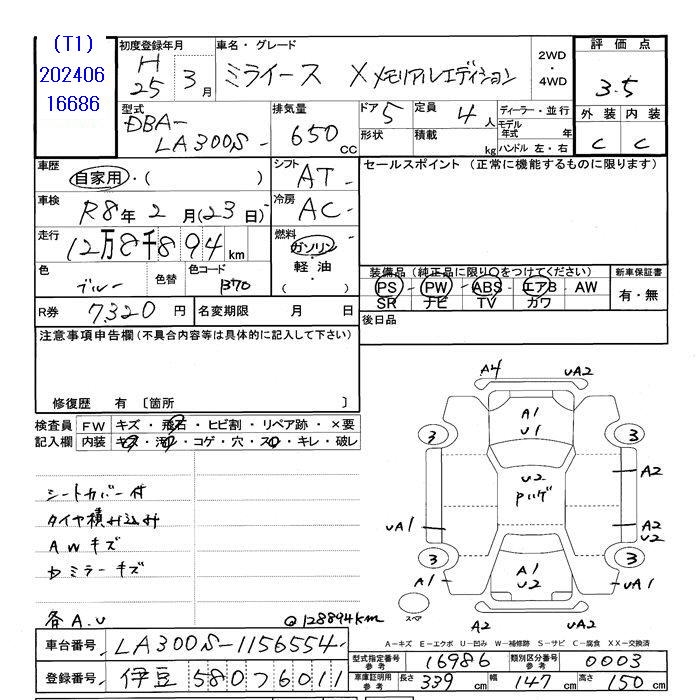 (T1)
202406
16686
初度登録年月
H 25 3月
車名・グレード
ミライース X メモリアルエディション
2WD
・
4WD
評価点
3.5
型式
DBA-
LA300S-
排気量
650
cc
ドア 5
形状
定員 4人
積載 kg
ディーラー・並行
モデル年式 年
ハンドル 左・右
外装 内装
C C
車歴
自家用・( )
シフト
AT-
セールスポイント (正常に機能するものに限ります)
車検
R8年 2月(23日)
冷房
AC-
走行
12万8千894 km
燃料
ガソリン・
軽油・
( )
色
ブルー
色替
色コード
B70
装備品(純正品に限り○をつけてください)
PS - PW - ABS - エアB - AW
SR ナビ TV カワ
新車保証書
有・無
R券 7,320円
名変期限 月 日
後日品
注意事項申告欄(不具合内容等は具体的に記入して下さい)
修復歴 有 〔箇所 〕
検査員
記入欄
FW キズ・飛石・ヒビ割・リペア跡・×要
内装 キズ・汚れ・コゲ・穴・スレ・キレ・破レ
シートカバー付
タイヤ積み込み
AWキズ
ミラーキズ
各A.U
Q128894km
A4 UA2
A1
U1
3 3
U2
Pハゲ
A2
UA1
A2
U2
3 3
A1
A1
U2
UA1
スペア
A2 UA2
A-キズ E-エクボ U-凹み W-補修跡 S-サビ C-腐食 XX-交換済
車台番号 LA300S-1156554
登録番号 伊豆 580 フ 6011
型式指定番号
参考
16986
類別区分番号
参考
0003
車庫証明用
参考
長さ 339cm 幅 147cm 高さ 150cm